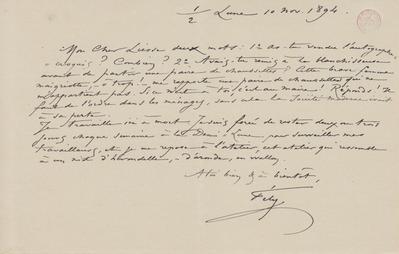 1/2 Lune 10 nov. 1894.
Mon Cher Liesse deux mots : 1º as-tu vendu l'autographe-
croquis ? Combien ? 2º Avais-tu remis à la blanchisseuse
avant de partir une paire de chaussettes ? Cette brave femme
maigrotte, - ô trop ! - me rapporte une paire de chaussettes qui ne
m'appartient pas. Si ce n'est à toi c'est au maire ! Réponds ! Il
faut de l'ordre dans les ménages, sans cela la Société moderne irait
à sa perte.
Je travaille ici à mort, je suis forcé de rester deux ou trois
jours chaque semaine à la Demi-Lune, pour surveiller mes
travailleurs, et je me repose à l'atelier, cet atelier qui ressemble
à un nid d'hirondelles, - d'aronder, en wallon.
A toi bien & à bientôt,
Fély